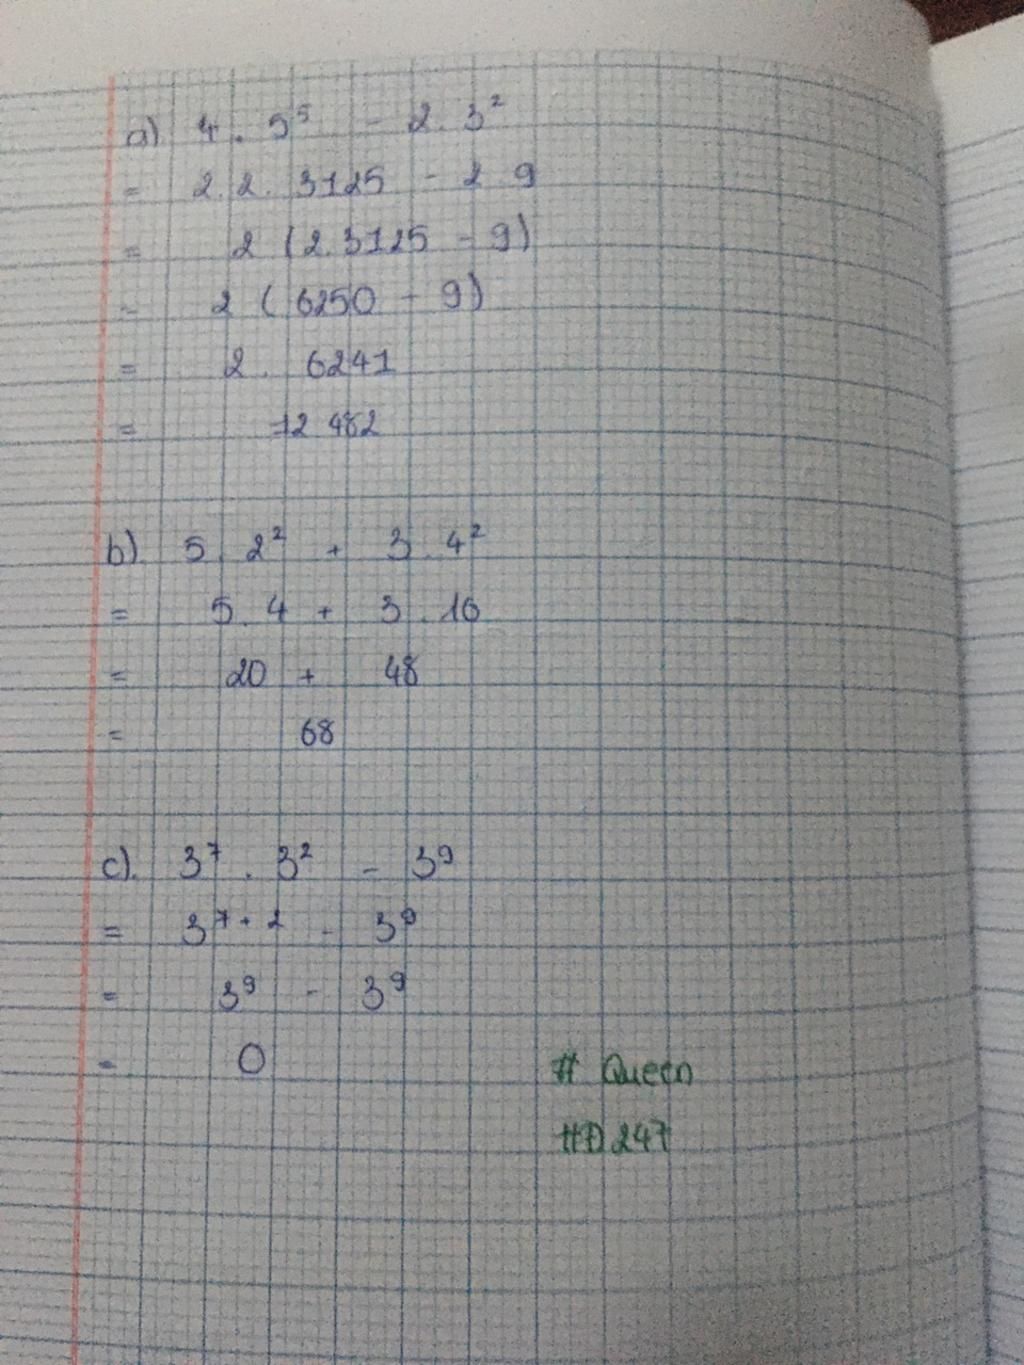 a) 4 . 5⁵ - 2 . 3²
= 2.2. 3125 - 2 9
= 2 (2.3125 - 9)
= 2 ( 6250 - 9)
= 2 . 6241
= 12 482
b). 5. 2² + 3 . 4²
= 5.4 + 3 . 16
= 20 + 48
= 68
c). 3⁷ . 3² - 3⁹
= 3⁷⁺² - 3⁹
= 3⁹ - 3⁹
= 0
# Queen
HD247